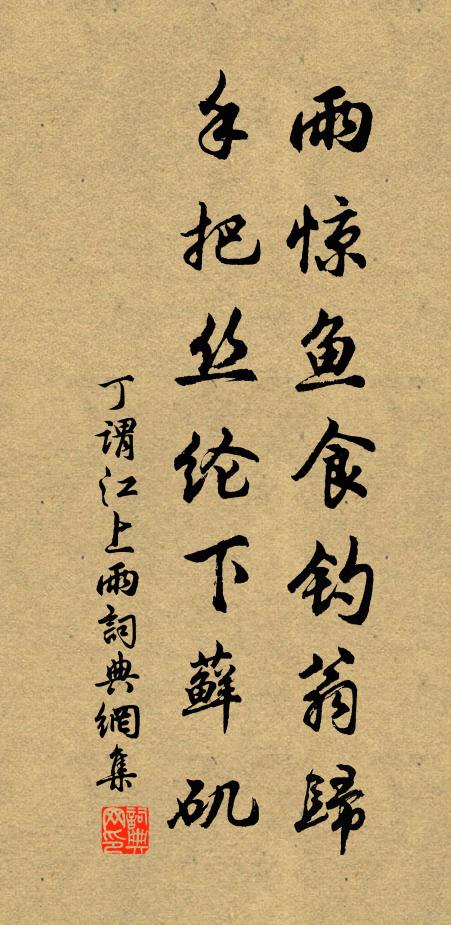 雨惊鱼食钓翁歸
手把丝纶下藓矶
丁謂江上雨詞典網集
詞典网印